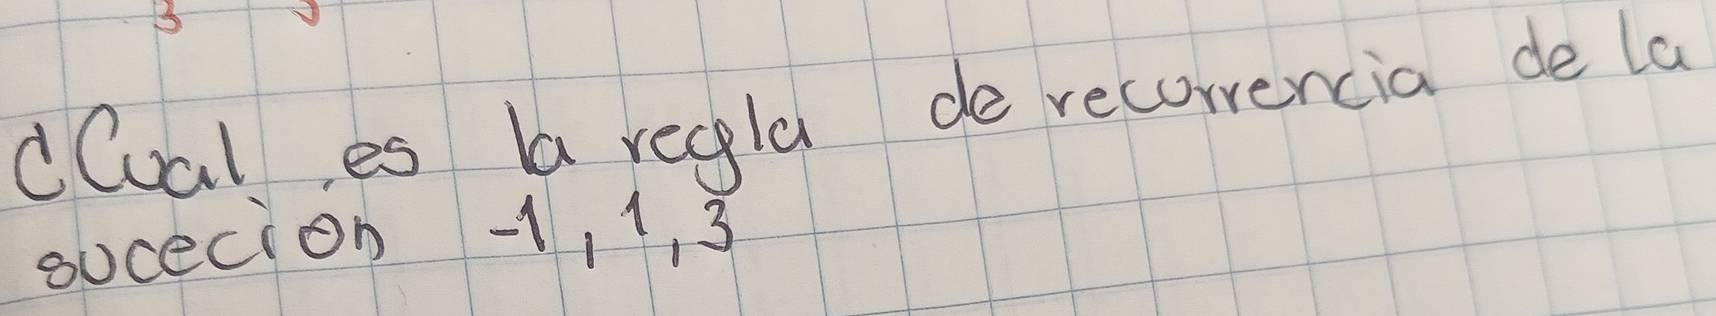 ¿Cual es la regla de recurrencia de la
sucecion -1, 1, 3